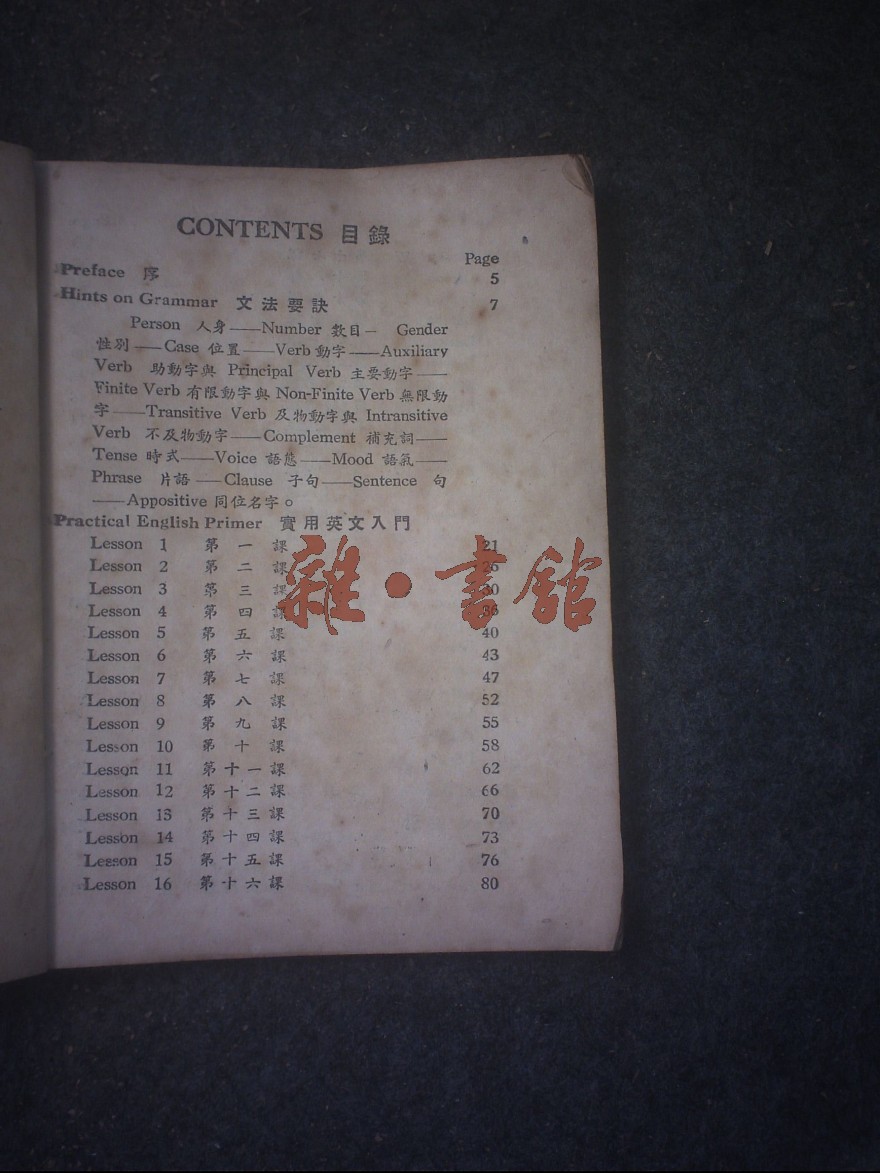 CONTENTS 目錄
Page
Preface 序 5
Hints on Grammar 文法要訣 7
Person 人身——Number 數目— Gender
性別——Case 位置——Verb 動字——Auxiliary
Verb 助動字與 Principal Verb 主要動字——
Finite Verb 有限動字與 Non-Finite Verb 無限動
字——Transitive Verb 及物動字與 Intransitive
Verb 不及物動字——Complement 補充詞——
Tense 時式——Voice 語態——Mood 語氣——
Phrase 片語——Clause 子句——Sentence 句
——Appositive 同位名字。
Practical English Primer 實用英文入門
Lesson 1 第一課 21
Lesson 2 第二課 26
Lesson 3 第三課 30
Lesson 4 第四課 36
雜·書館
Lesson 5 第五課 40
Lesson 6 第六課 43
Lesson 7 第七課 47
Lesson 8 第八課 52
Lesson 9 第九課 55
Lesson 10 第十課 58
Lesson 11 第十一課 62
Lesson 12 第十二課 66
Lesson 13 第十三課 70
Lesson 14 第十四課 73
Lesson 15 第十五課 76
Lesson 16 第十六課 80